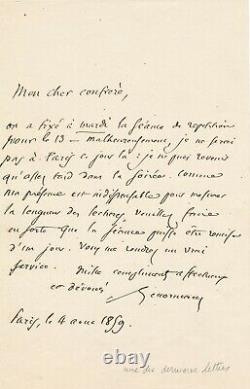 Mon cher confrère,
on a fixé à mardi la séance de répétition
pour le 13 – malheureusement, je ne serai
pas à Paris ce jour là : je ne puis revenir
qu'assez tard dans la soirée. comme
ma présence est indispensable pour mesurer
la longueur des lectures veuillez faire
en sorte que la séance puisse être remise
d'un jour. Vous me rendrez un vrai
service. Mille compliments affectueux
et dévoués
Lenormant
Paris, le 4 aout 1859.
une des dernières lettres